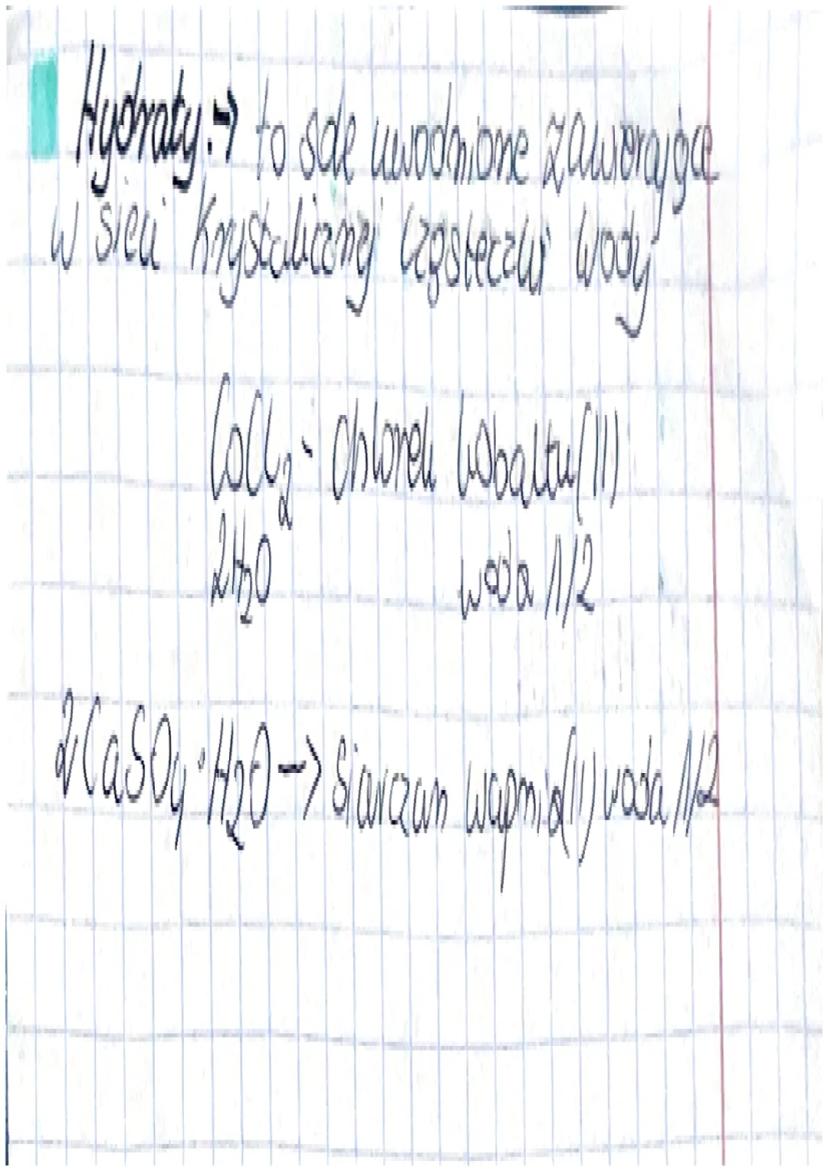 Hydraty:→ to sole uwodnione zawierające
w sieci krystalicznej cząsteczki wody
CoCl₂ · chlorek kobaltu(II)
2H₂O woda 1/2
2CaSO₄·H₂O → siarczan wapnia(II) woda 1/2